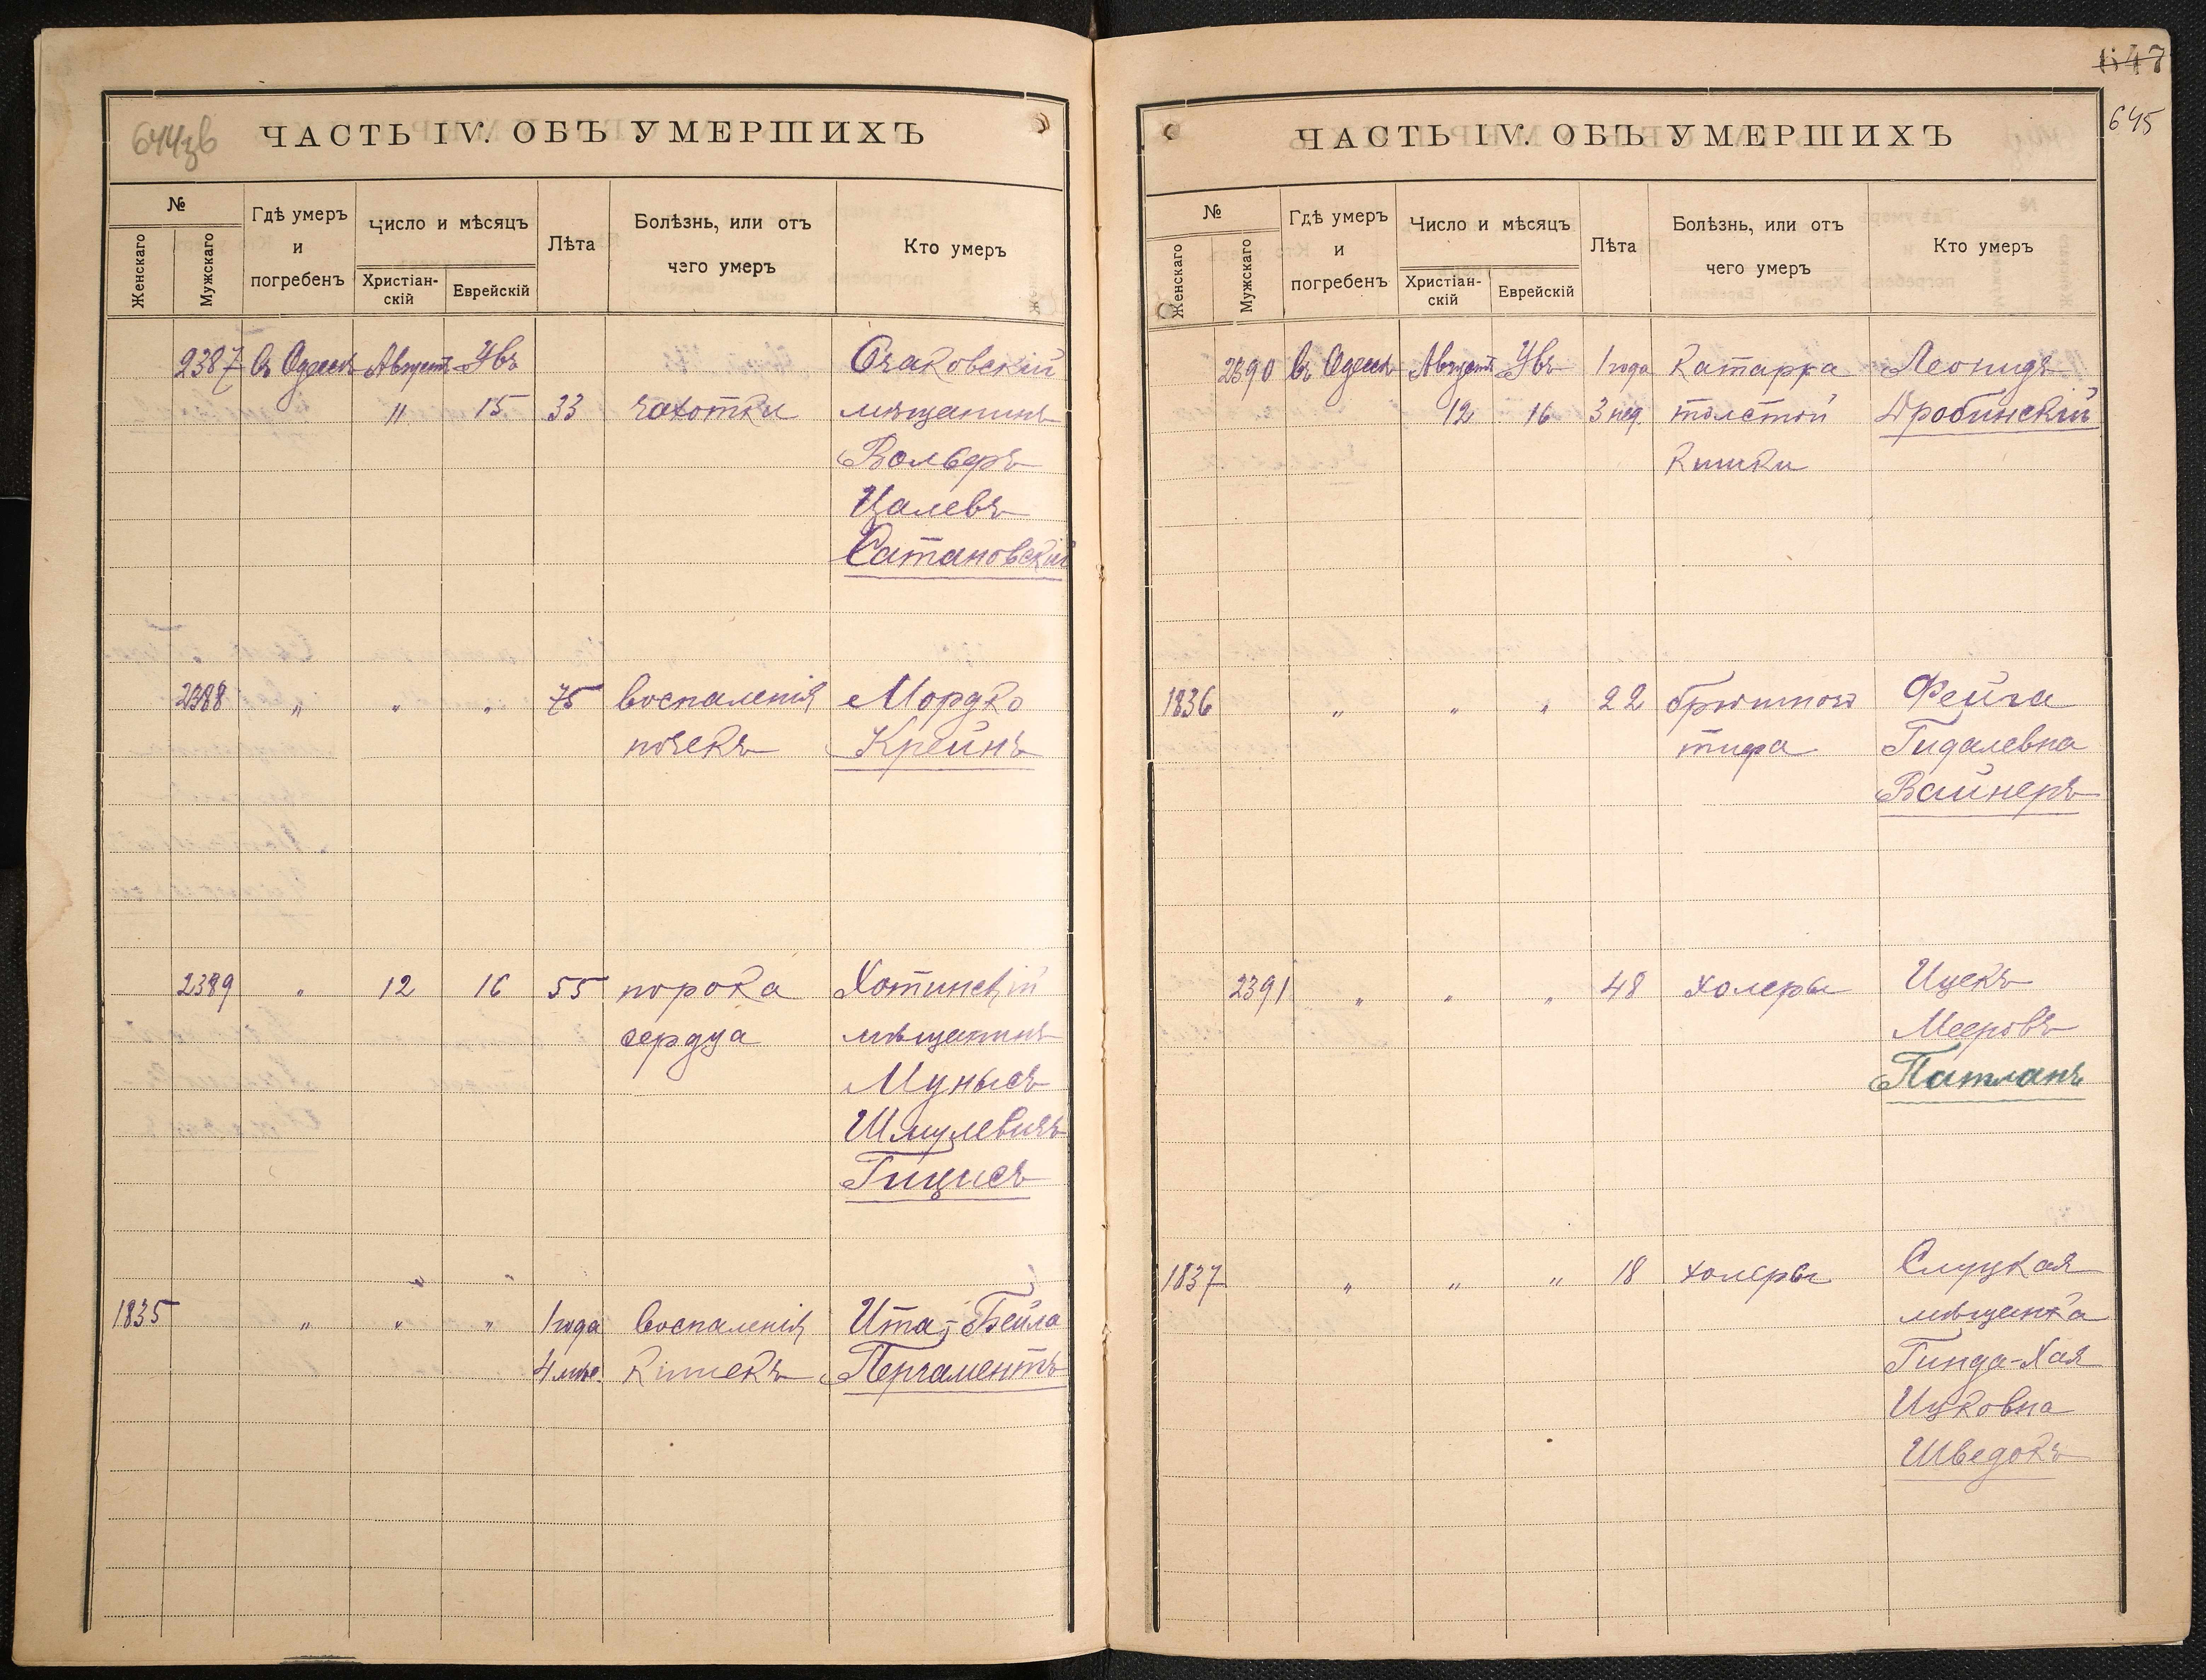 644зв
ЧАСТЬ IV. ОБЪ УМЕРШИХЪ
№
Женскаго
Мужскаго
Гдѣ умеръ и погребенъ
Число и мѣсяцъ
Христіан-скій
Еврейскій
Лѣта
Болѣзнь, или отъ чего умеръ
Кто умеръ
2387 Въ Одессѣ Августъ Увъ Очаковскій
" 15 33 чахотки мѣщанинъ
Вольфъ
Цалевъ
Сатановскій
2388 " " " 75 воспаленія Мордко
почекъ Крейнъ
2389 " 12 16 55 порока Хотинскій
сердца мѣщанинъ
Мунысъ
Шмулевичъ
Гицисъ
" "
1835 " " " 1 года воспаленія Ита-Бейла
4 мѣс. кишекъ Пергаментъ
647
645
ЧАСТЬ IV. ОБЪ УМЕРШИХЪ
№
Женскаго
Мужскаго
Гдѣ умеръ и погребенъ
Число и мѣсяцъ
Христіан-скій
Еврейскій
Лѣта
Болѣзнь, или отъ чего умеръ
Кто умеръ
2390 Въ Одессѣ Августъ Увъ 1 года катарра Леонидъ
12 16 3 нед. толстой Дробинскій
кишки
1836 " " " 22 брюшного Фейга
тифа Гидалевна
Вайнеръ
2391 " " " 48 холеры Ицекъ
Мееровъ
Патланъ
1837 " " " 18 холеры Слуцкая
мѣщанка
Гинда-Хая
Ицковна
Шведокъ